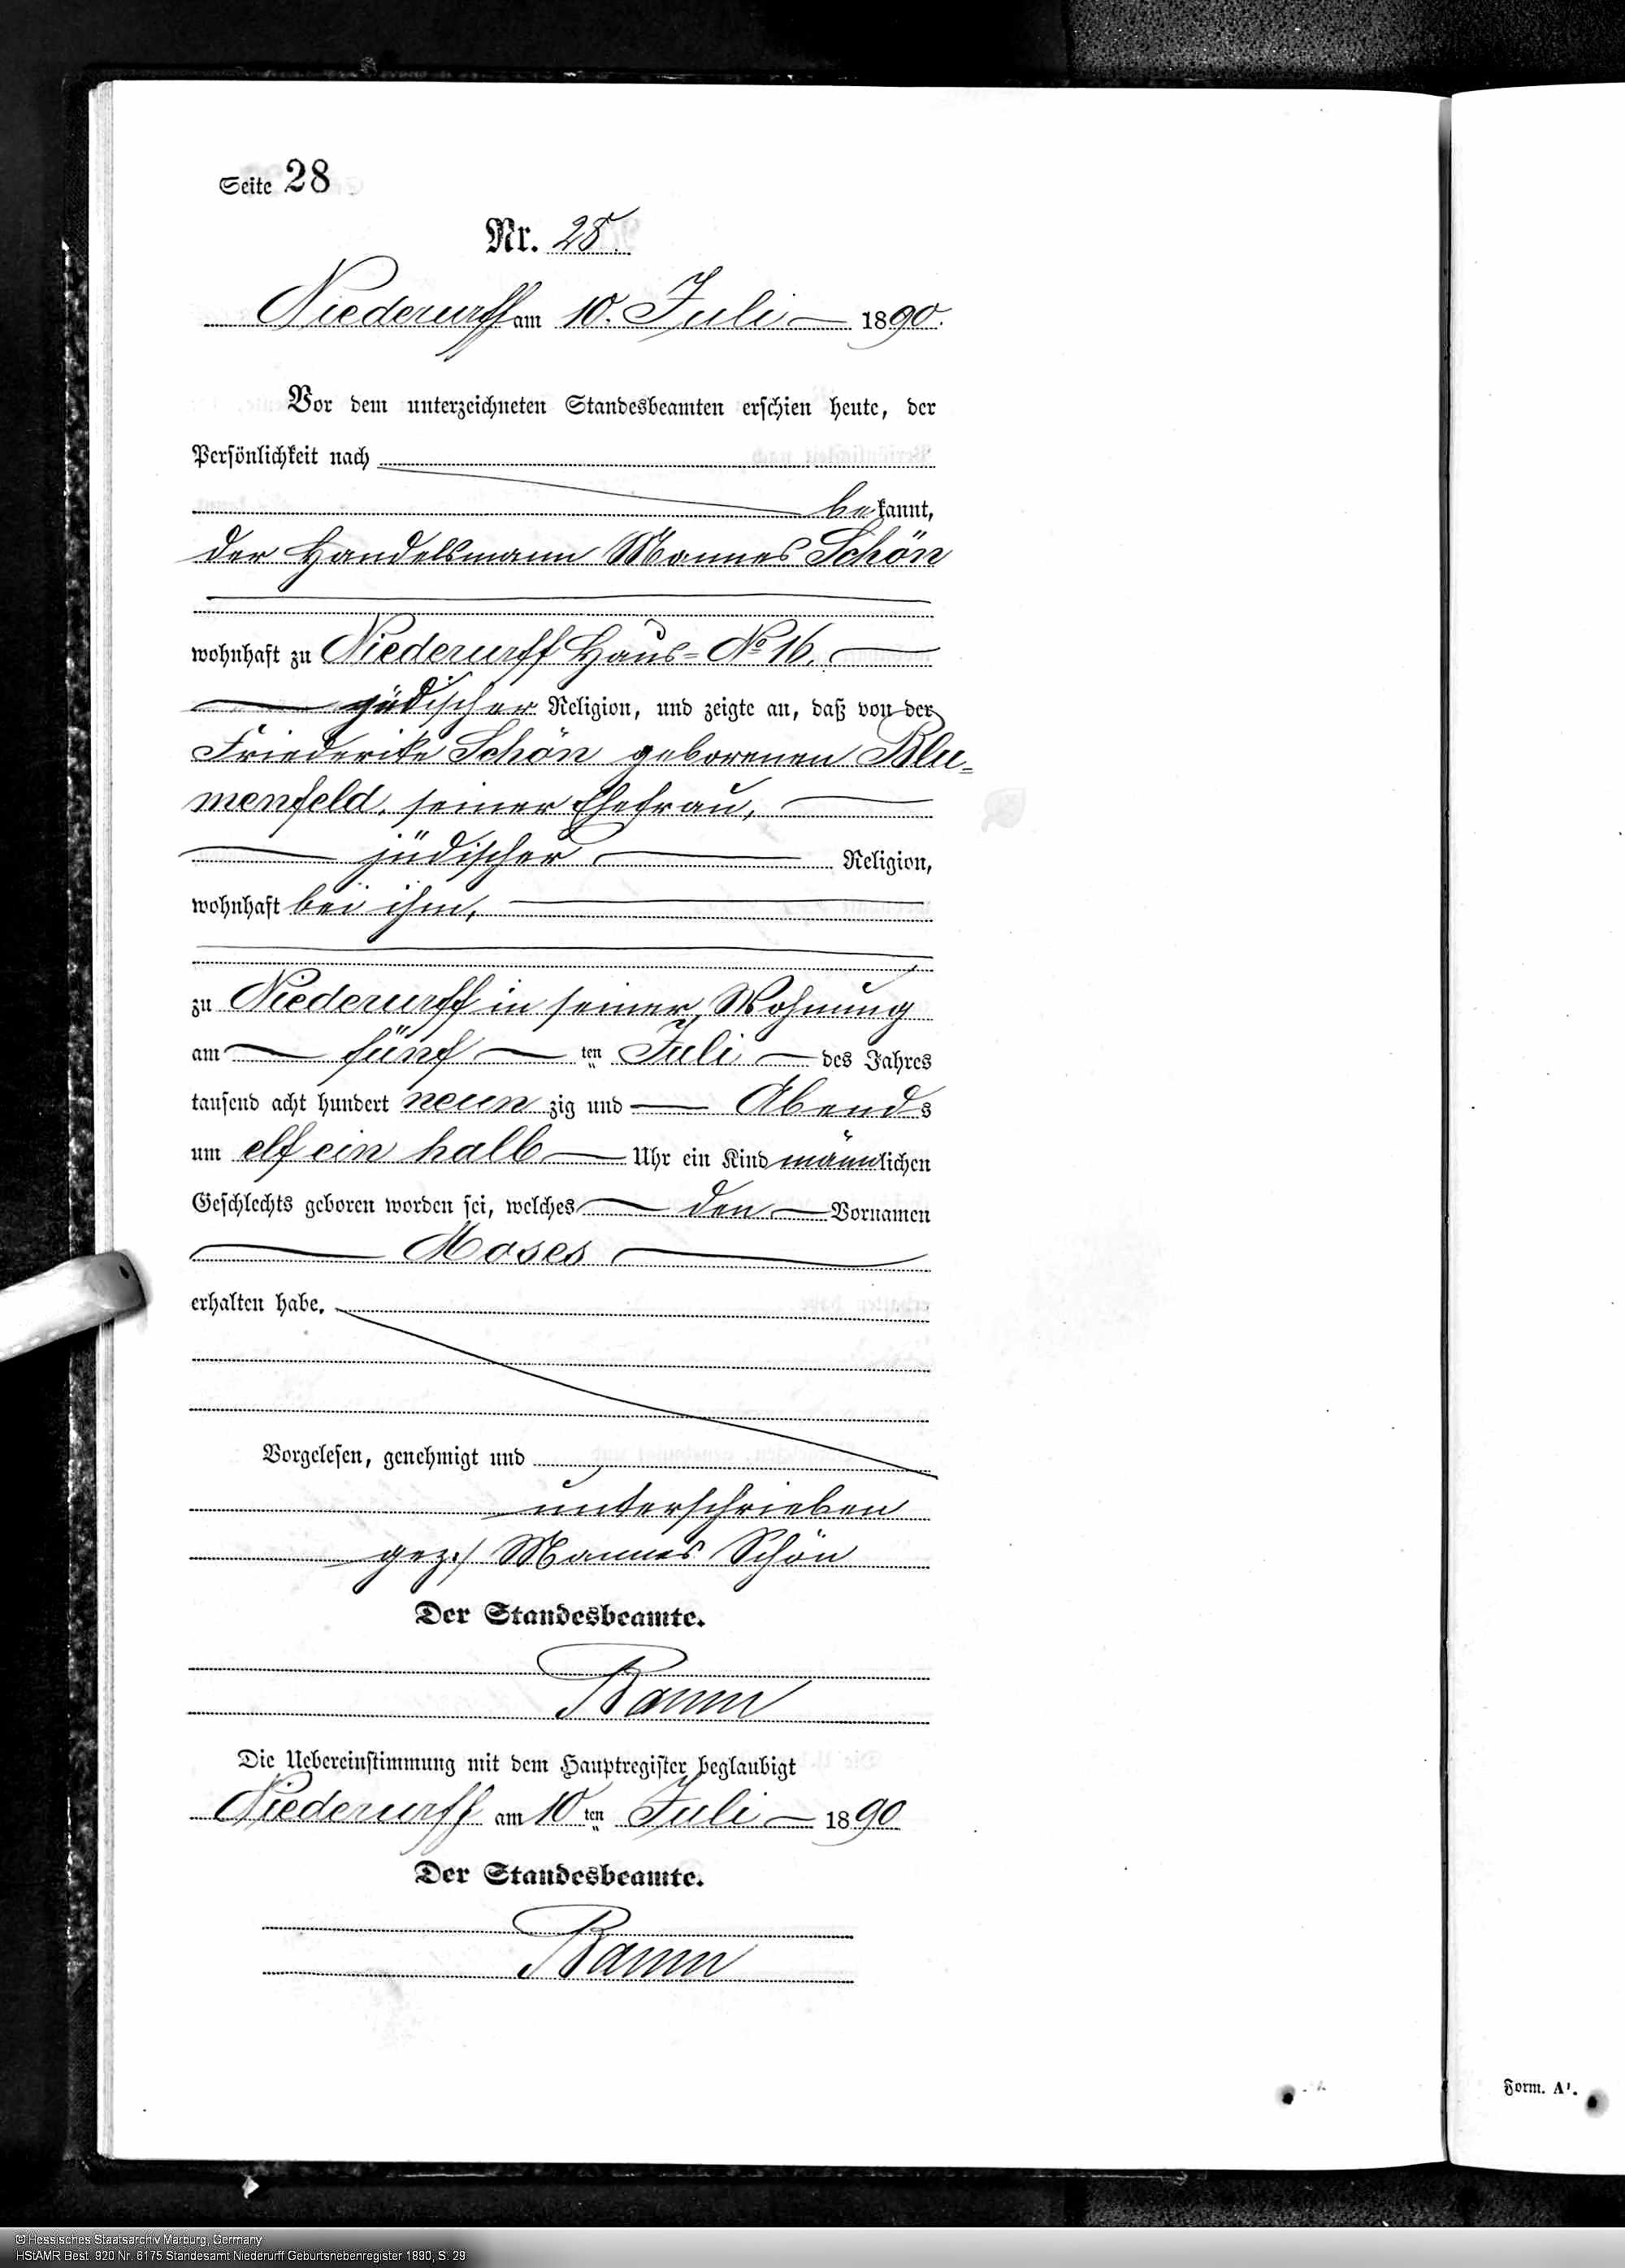 Seite 28
Nr. 28.
Niederurff am 10. Juli 1890.
Vor dem unterzeichneten Standesbeamten erschien heute, der
Persönlichkeit nach
bekannt,
der Handelsmann Mannes Schön
wohnhaft zu Niederurff Haus-No 16.
jüdischer Religion, und zeigte an, daß von der
Friederike Schön geborenen Blu-
menfeld, seiner Ehefrau,
jüdischer Religion,
wohnhaft bei ihm,
zu Niederurff in seiner Wohnung
am fünf ten Juli des Jahres
tausend acht hundert neunzig und Abends
um elf ein halb Uhr ein Kind männlichen
Geschlechts geboren worden sei, welches den Vornamen
Moses
erhalten habe.
Vorgelesen, genehmigt und
unterschrieben
gez./ Mannes Schön
Der Standesbeamte.
Die Uebereinstimmung mit dem Hauptregister beglaubigt
Niederurff am 10ten Juli 1890
Der Standesbeamte.
Form. A1.
© Hessisches Staatsarchiv Marburg, Germany
HStAMR Best. 920 Nr. 6175 Standesamt Niederurff Geburtsnebenregister 1890, S. 29